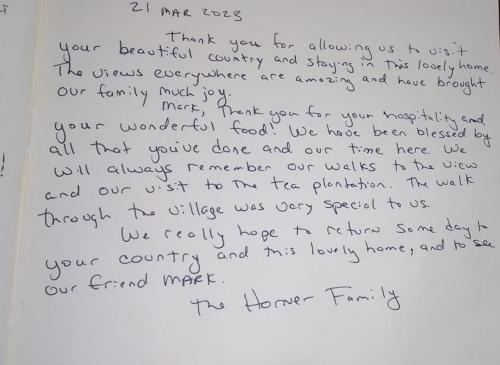 21 MAR 2023
Thank you for allowing us to visit
your beautiful country and staying in this lovely home.
The views everywhere are amazing and have brought
our family much joy.
Mark, Thank you for your hospitality and
your wonderful food! We have been blessed by
all that you've done and our time here. We
will always remember our walks to the view
and our visit to the tea plantation. The walk
through the village was very special to us.
We really hope to return some day to
your country and this lovely home, and to see
our friend MARK.
The Horner Family